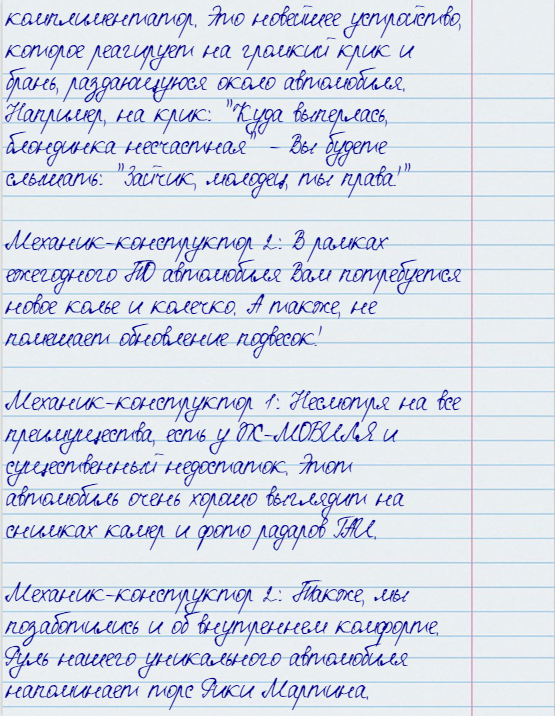 комплиментатор. Это новейшее устройство,
которое реагирует на громкий крик и
брань, раздающуюся около автомобиля.
Например, на крик: "Куда выперлась,
блондинка несчастная" - Вы будете
слышать: "Зайчик, молодец, ты права!"
Механик-конструктор 2: В рамках
ежегодного ТО автомобиля Вам потребуется
новое колье и колечко. А также, не
помешает обновление подвесок!
Механик-конструктор 1: Несмотря на все
преимущества, есть у ДК-МОБИЛЯ и
существенный недостаток. Этот
автомобиль очень хорошо выглядит на
снимках камер и фото радаров ГАИ.
Механик-конструктор 2: Также, мы
позаботились и об внутреннем комфорте.
Руль нашего уникального автомобиля
напоминает торс Рики Мартина.